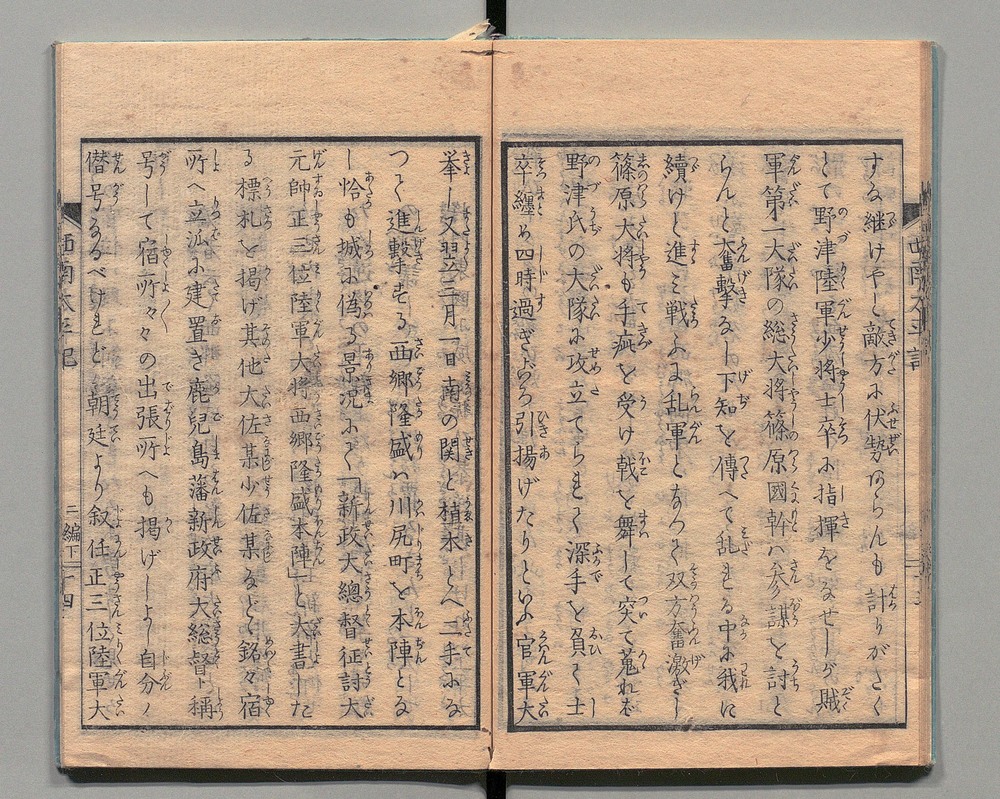 すな継けやと敵方に伏勢あらんも計りがたく
とて野津陸軍少将士卒に指揮をなせしが賊
軍第一大隊の総大将篠原國幹ハ参謀を討と
らんと奮撃なし下知を傳へて乱るる中に我に
續けと進み戦ふよ乱軍となつて双方奮激せし
篠原大将も手疵を受け戟を舞して突て荒れば
野津氏の大隊に攻立てられて深手を負て士
卒纏め四時過ぎより引揚げたりといふ官軍大
挙し又翌三月一日南の関と植木とへ二手にな
つて進撃せる西郷隆盛ハ川尻町を本陣とな
し恰も城に偽る景况にて「新政大總督征討大
元帥正三位陸軍大将西郷隆盛本陣」と大書した
る標札を掲げ其他大佐某少佐某などと銘々宿
所へ立派に建置き鹿児島藩新政府大総督ト稱
号して宿所々々の出張所へも掲げしよし自分ノ
僭号なるべけれど朝廷より叙任正三位陸軍大
西南太平記
二編下
十四